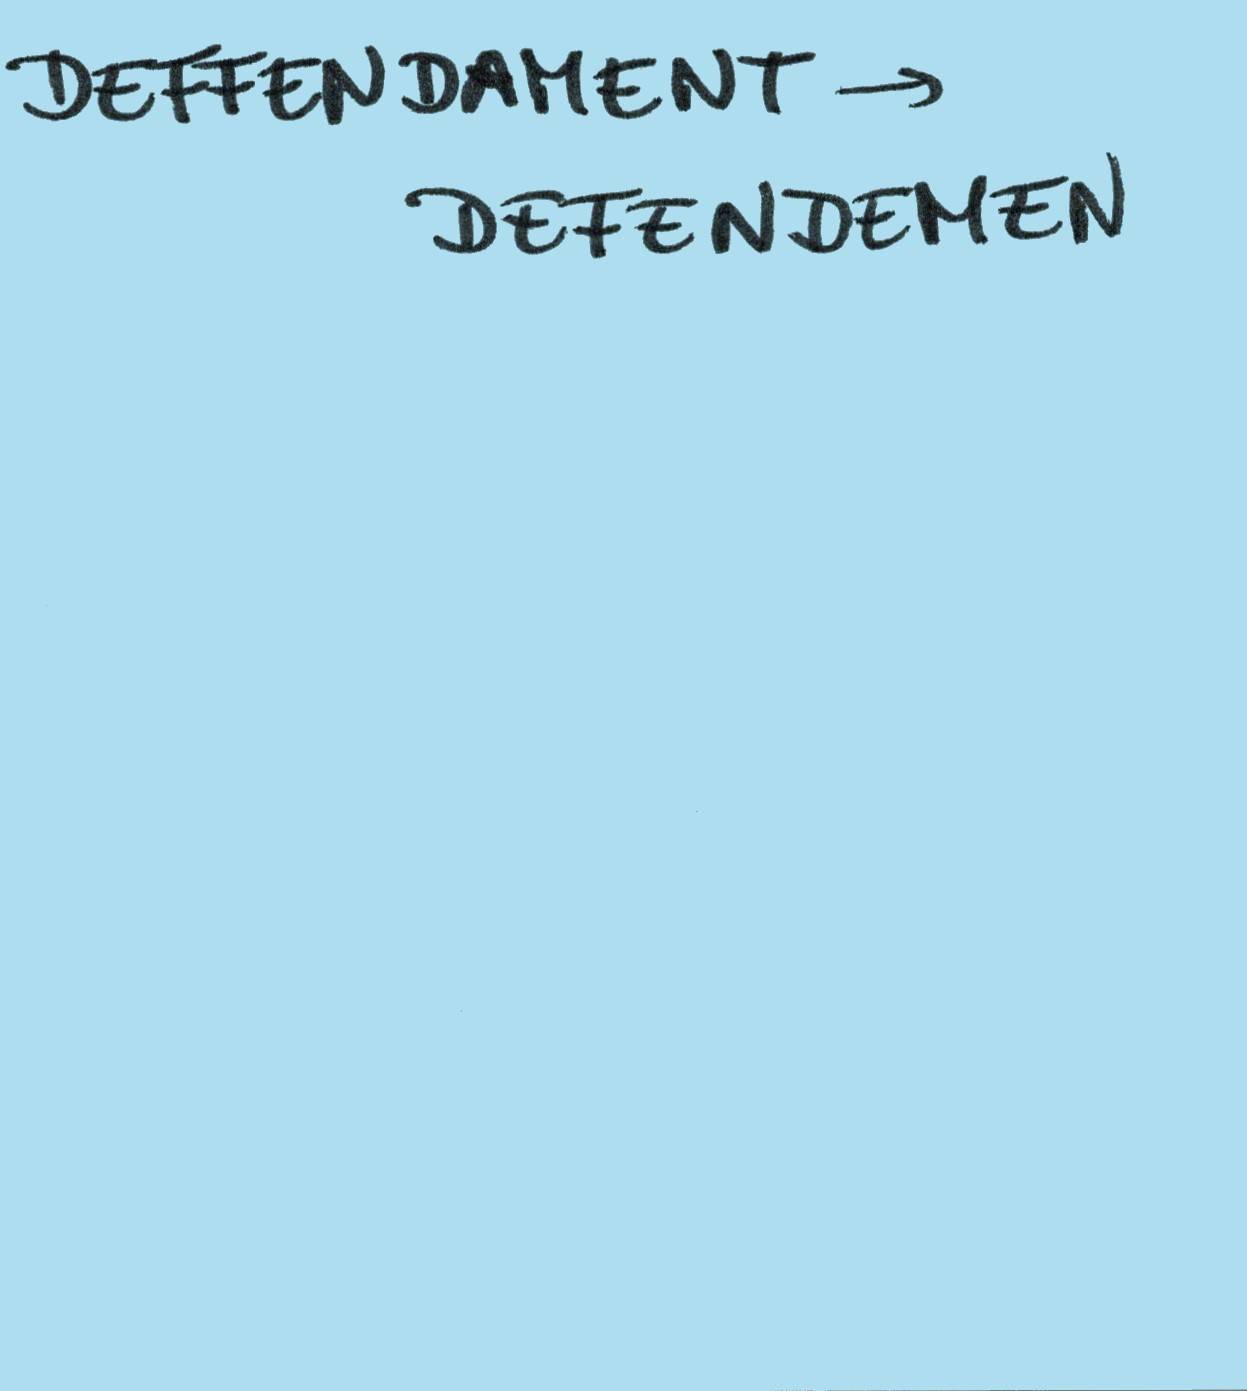 DEFFENDAMENT →
DEFENDEMEN